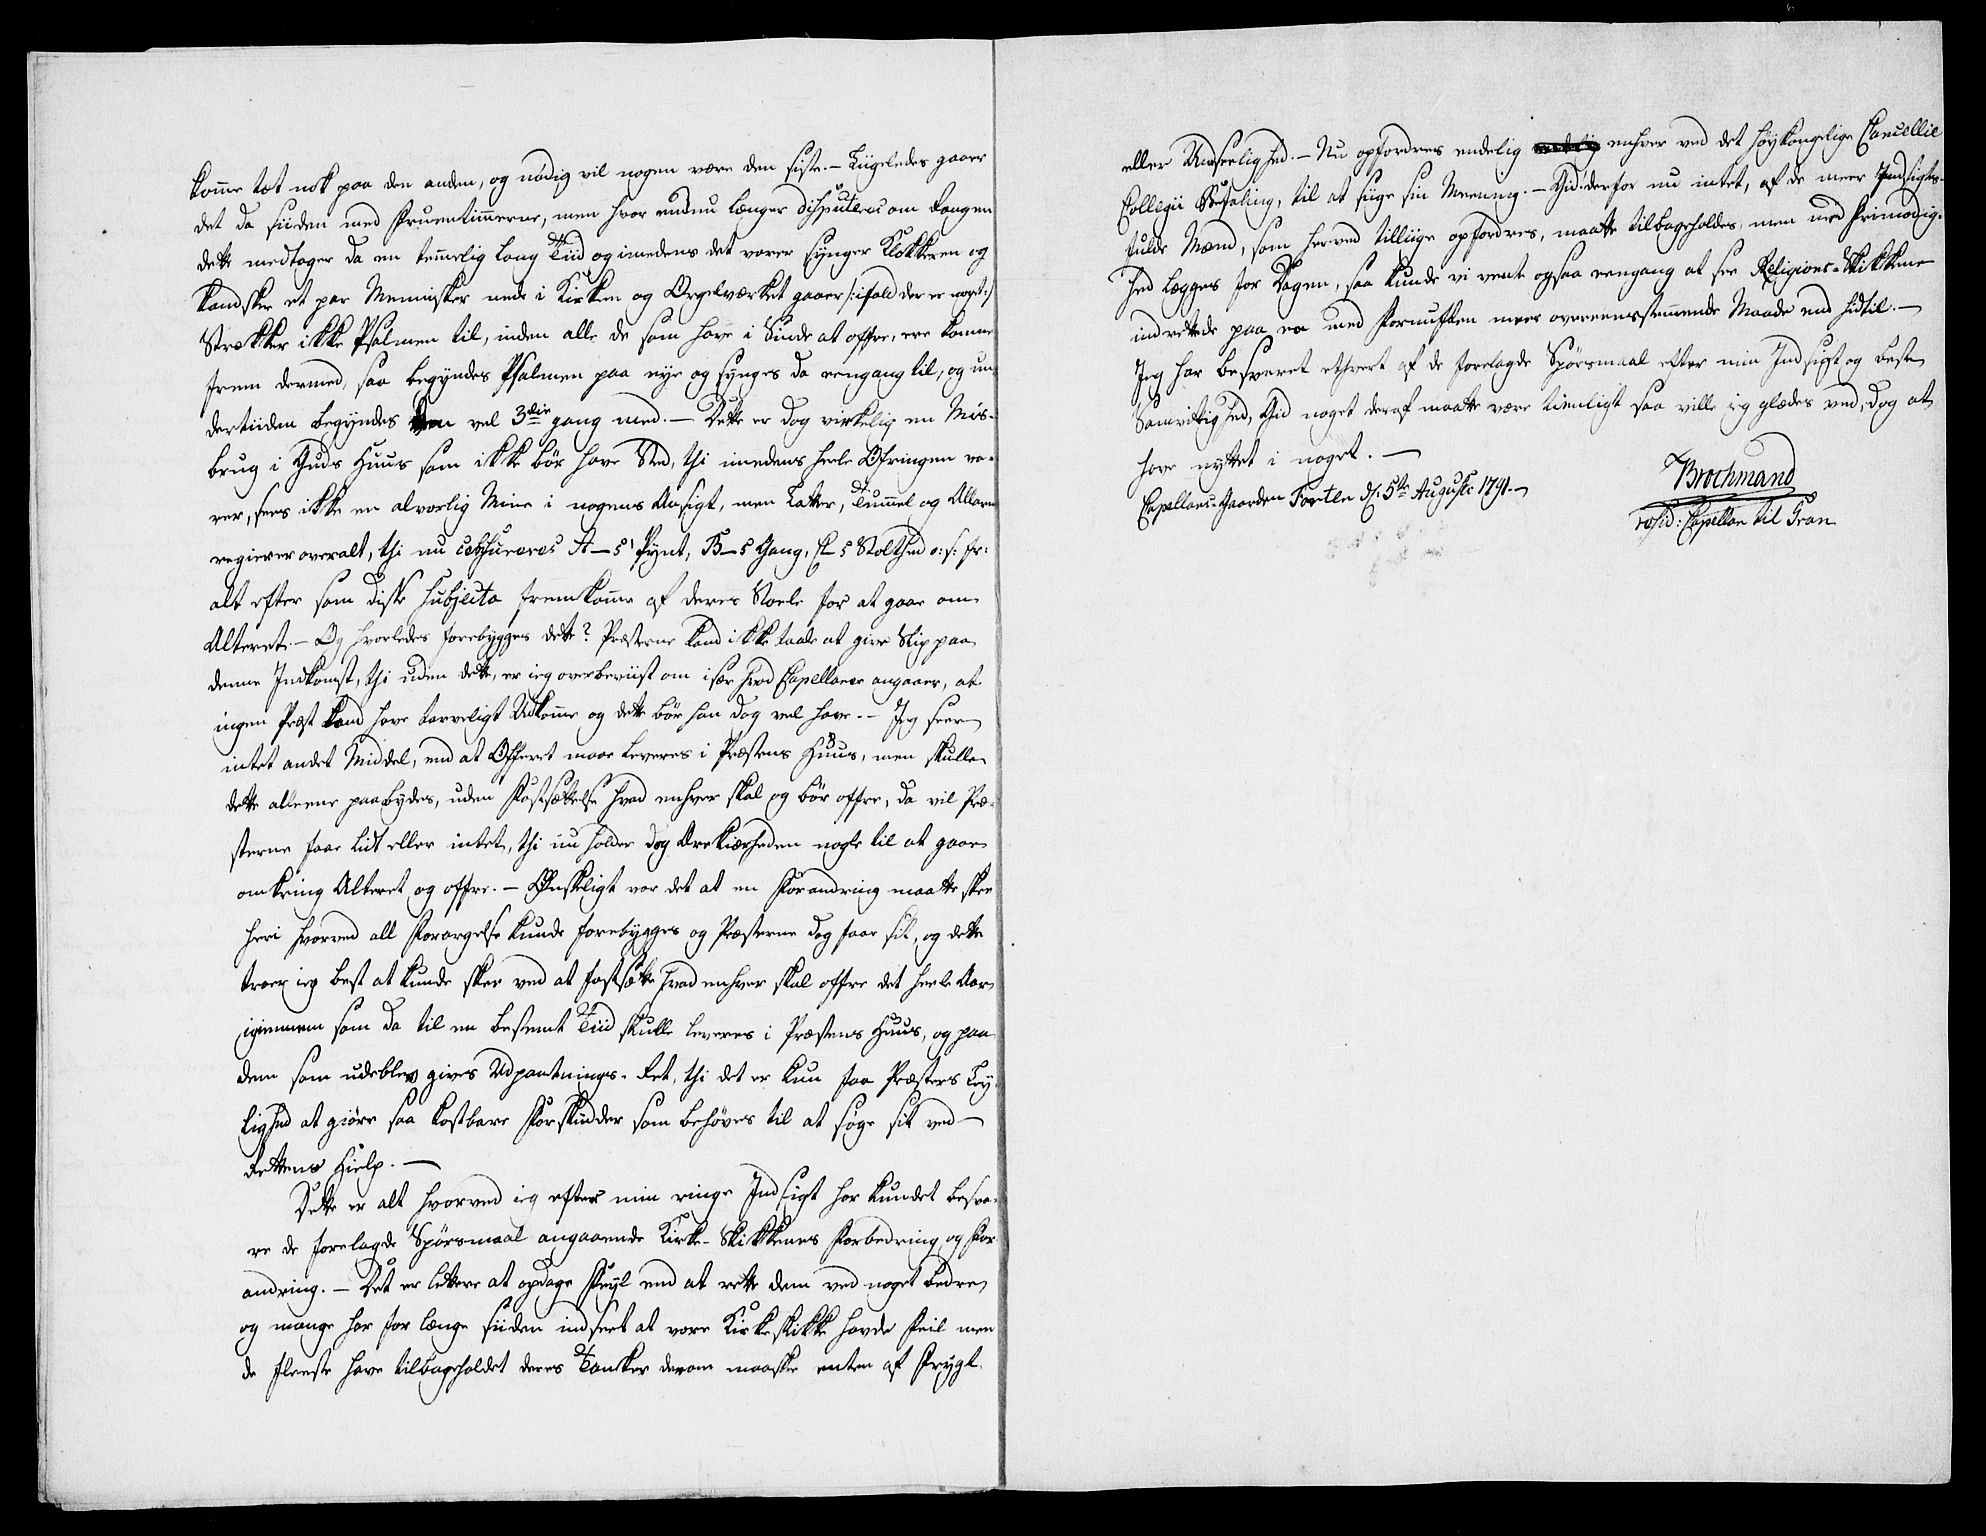 komme tæt nok paa den anden, og nødig vil nogen være den siste. – Liigeledes gaaer
det da siiden med Fruentimmerne, men hvor endnu længer disputeres om Rangen
dette medtager da en temmelig lang Tiid og imedens det varer synger Klokkeren og
kandskee et par Mennisker nede i Kirken og Orgelværket gaaer /: ifald der er noget :/
Strækker ikke Psalmen til, inden alle de som have i Sinde at offre, ere komne
frem dermed, saa begyndes Psalmen paa nye og synges da eengang til, og un-
dertiiden begyndes den vel 3die gang med. – Dette er dog virkelig en Mis-
brug i Guds Huus som ikke bør have Sted, thi imedens heele Ofringen va-
rer, sees ikke en alvorlig Mine i nogens Ansigt, men Latter, Tummel og Allarm
regierer overalt, thi nu censureres A–s Pynt, B–s Gang, C–s Stolthed o: s: fr:
alt efter som disse Subjecta fremkomme af deres Stoele for at gaae om
Alteret. – Og hvorledes forebygges dette? Præsterne kand ikke taale at give Slip paa
denne Indkomst, thi uden dette, er ieg overbeviist om især hvad Capellaner angaaer, at
ingen Præst kand have tarveligt Udkomme og dette bør han dog vel have. – Jeg seer
intet andet Middel, end at Offeret maae leveres i Præstens Huus, men skulle
dette alleene paabydes, uden Fastsættelse hvad enhver skal og bør offre, da vil Præ-
sterne faae lidt eller intet, thi nu holder dog Ærekiærheden nogle til at gaae
omkring Alteret og offre. – Ønskeligt var det at en Forandring maatte skee
heri hvorved all Forargelse kunde forebygges og Præsterne dog faae sit, og dette
troer ieg best at kunde skee ved at fastsætte hvad enhver skal offre det heele Aar
igiennem som da til en bestemt Tiid skulle leveres i Præstens Huus, og paa
dem som udeblev gives Udpantnings-Ret, thi det er kun faa Præsters Ley-
lighed at giøre saa kostbare Forskudder som behøves til at søge sit ved
Rettens Hielp. –
Dette er alt hvorved ieg efter min ringe Indsigt har kundet besva-
re de forelagde Spørsmaal angaaende Kirke-Skikkenes Forbedring og For-
andring. – Det er lettere at opdage Feyl end at rette dem ved noget bedre,
og mange har for længe siiden indseet at vore Kirkeskikke havde Feil men
de fleeste have tilbageholdet deres Tanker derom maaskee enten af Frygt
eller Undseelighed. – Nu opfordres endelig enhver ved det høykongelige Cancellie
Collegii Befaling, til at siige sin Meening. – Gid derfor nu intet, af de meer Indsigts-
fulde Mænd, som herved tilliige opfordres, maatte tilbageholdes, men med Frimodig-
hed lægges for Dagen, saa kunde vi vente ogsaa eengang at see Religions-Skikkene
indrettede paa en med Fornuften meer overeensstemmende Maade end hidtil. –
Jeg har besvaret ethvert af de forelagde Spørsmaal efter min Indsigt og beste
Samvittighed, Gid noget deraf maatte være tienligt saa ville ieg glædes ved, dog at
have nyttet i noget. –
Capellans-Gaarden Tortle d. 5te Augusti 1791. –
Brochmand
resid: Capellan til Gran